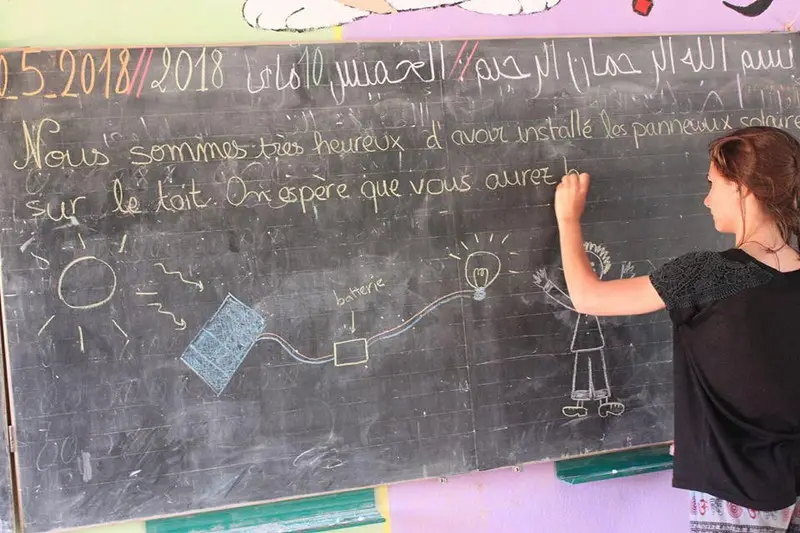 بسم الله الرحمان الرحيم // الخميس 10 ماي 2018 // 0_5_2018
Nous sommes très heureux d'avoir installé les panneaux solaire
sur le toit. On espère que vous aurez b
batterie